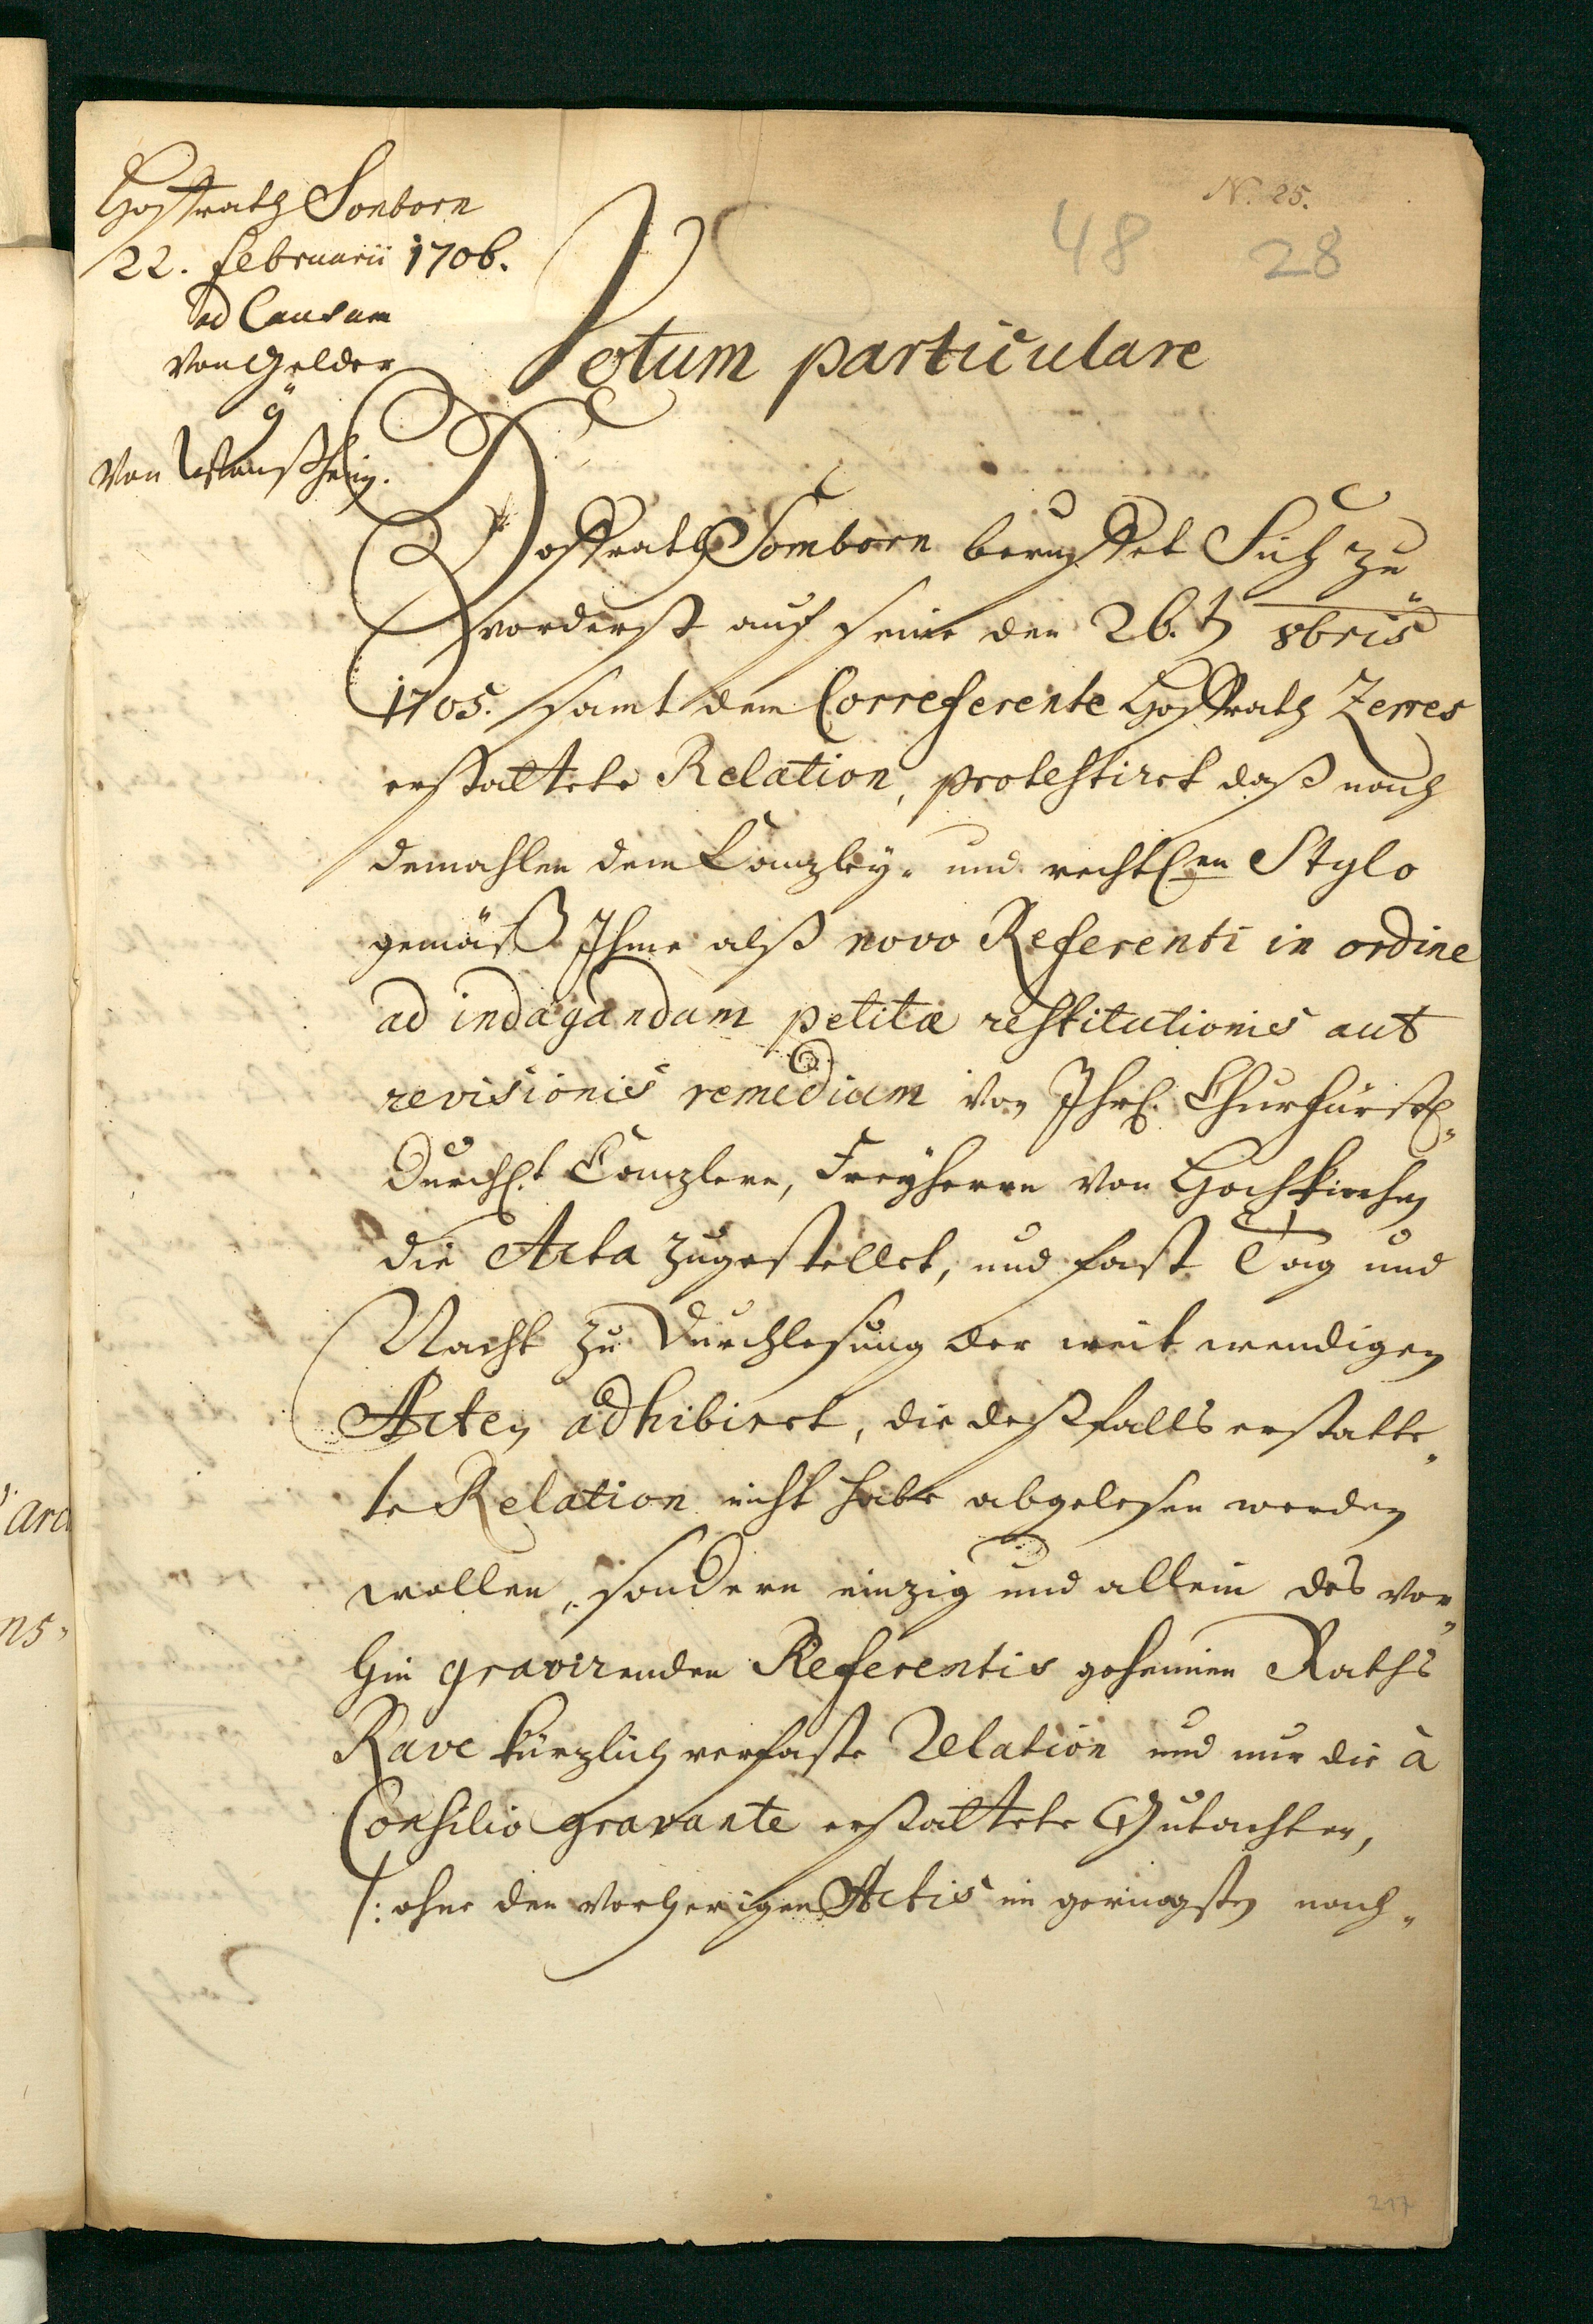 N. 25.
48 28
Hoffrath Sonborn
22. Februarii 1706.
ad Causam
von Gelder
von
Votum particulare
Hoffrath Somborn beruffet Sich zu„
vorderst auf seine den 26.t 8bris
1705. samt dem Correferente Hoffrath Zerres
erstattete Relation, protestirt daß nach
demahlen dem Canzley- und rechtl.en Stylo
gemäß Ihme alß novo Referenti in ordine
ad indagandam petitæ restitutionis aut
revisionis remedium von Ihrl. Churfürstl„
Durchl.t Canzlern, Freyherrn von Hochkirchen
die Acta zugestellet, und fast Tag und
Nacht zu Durchlesung der weit wendigen
Acten adhibiret, die deßfalls erstatte„
te Relation nicht habe abgelesen werden
wollen, sondern einzig und allein des vor„
hin gravirenden Referentis geheimen Raths
Rave kürzlich verfaste Relation und nur die à
Consilio gravante erstattete Gutachten,
/: ohne den vorherigen Actis im geringsten nach„
217